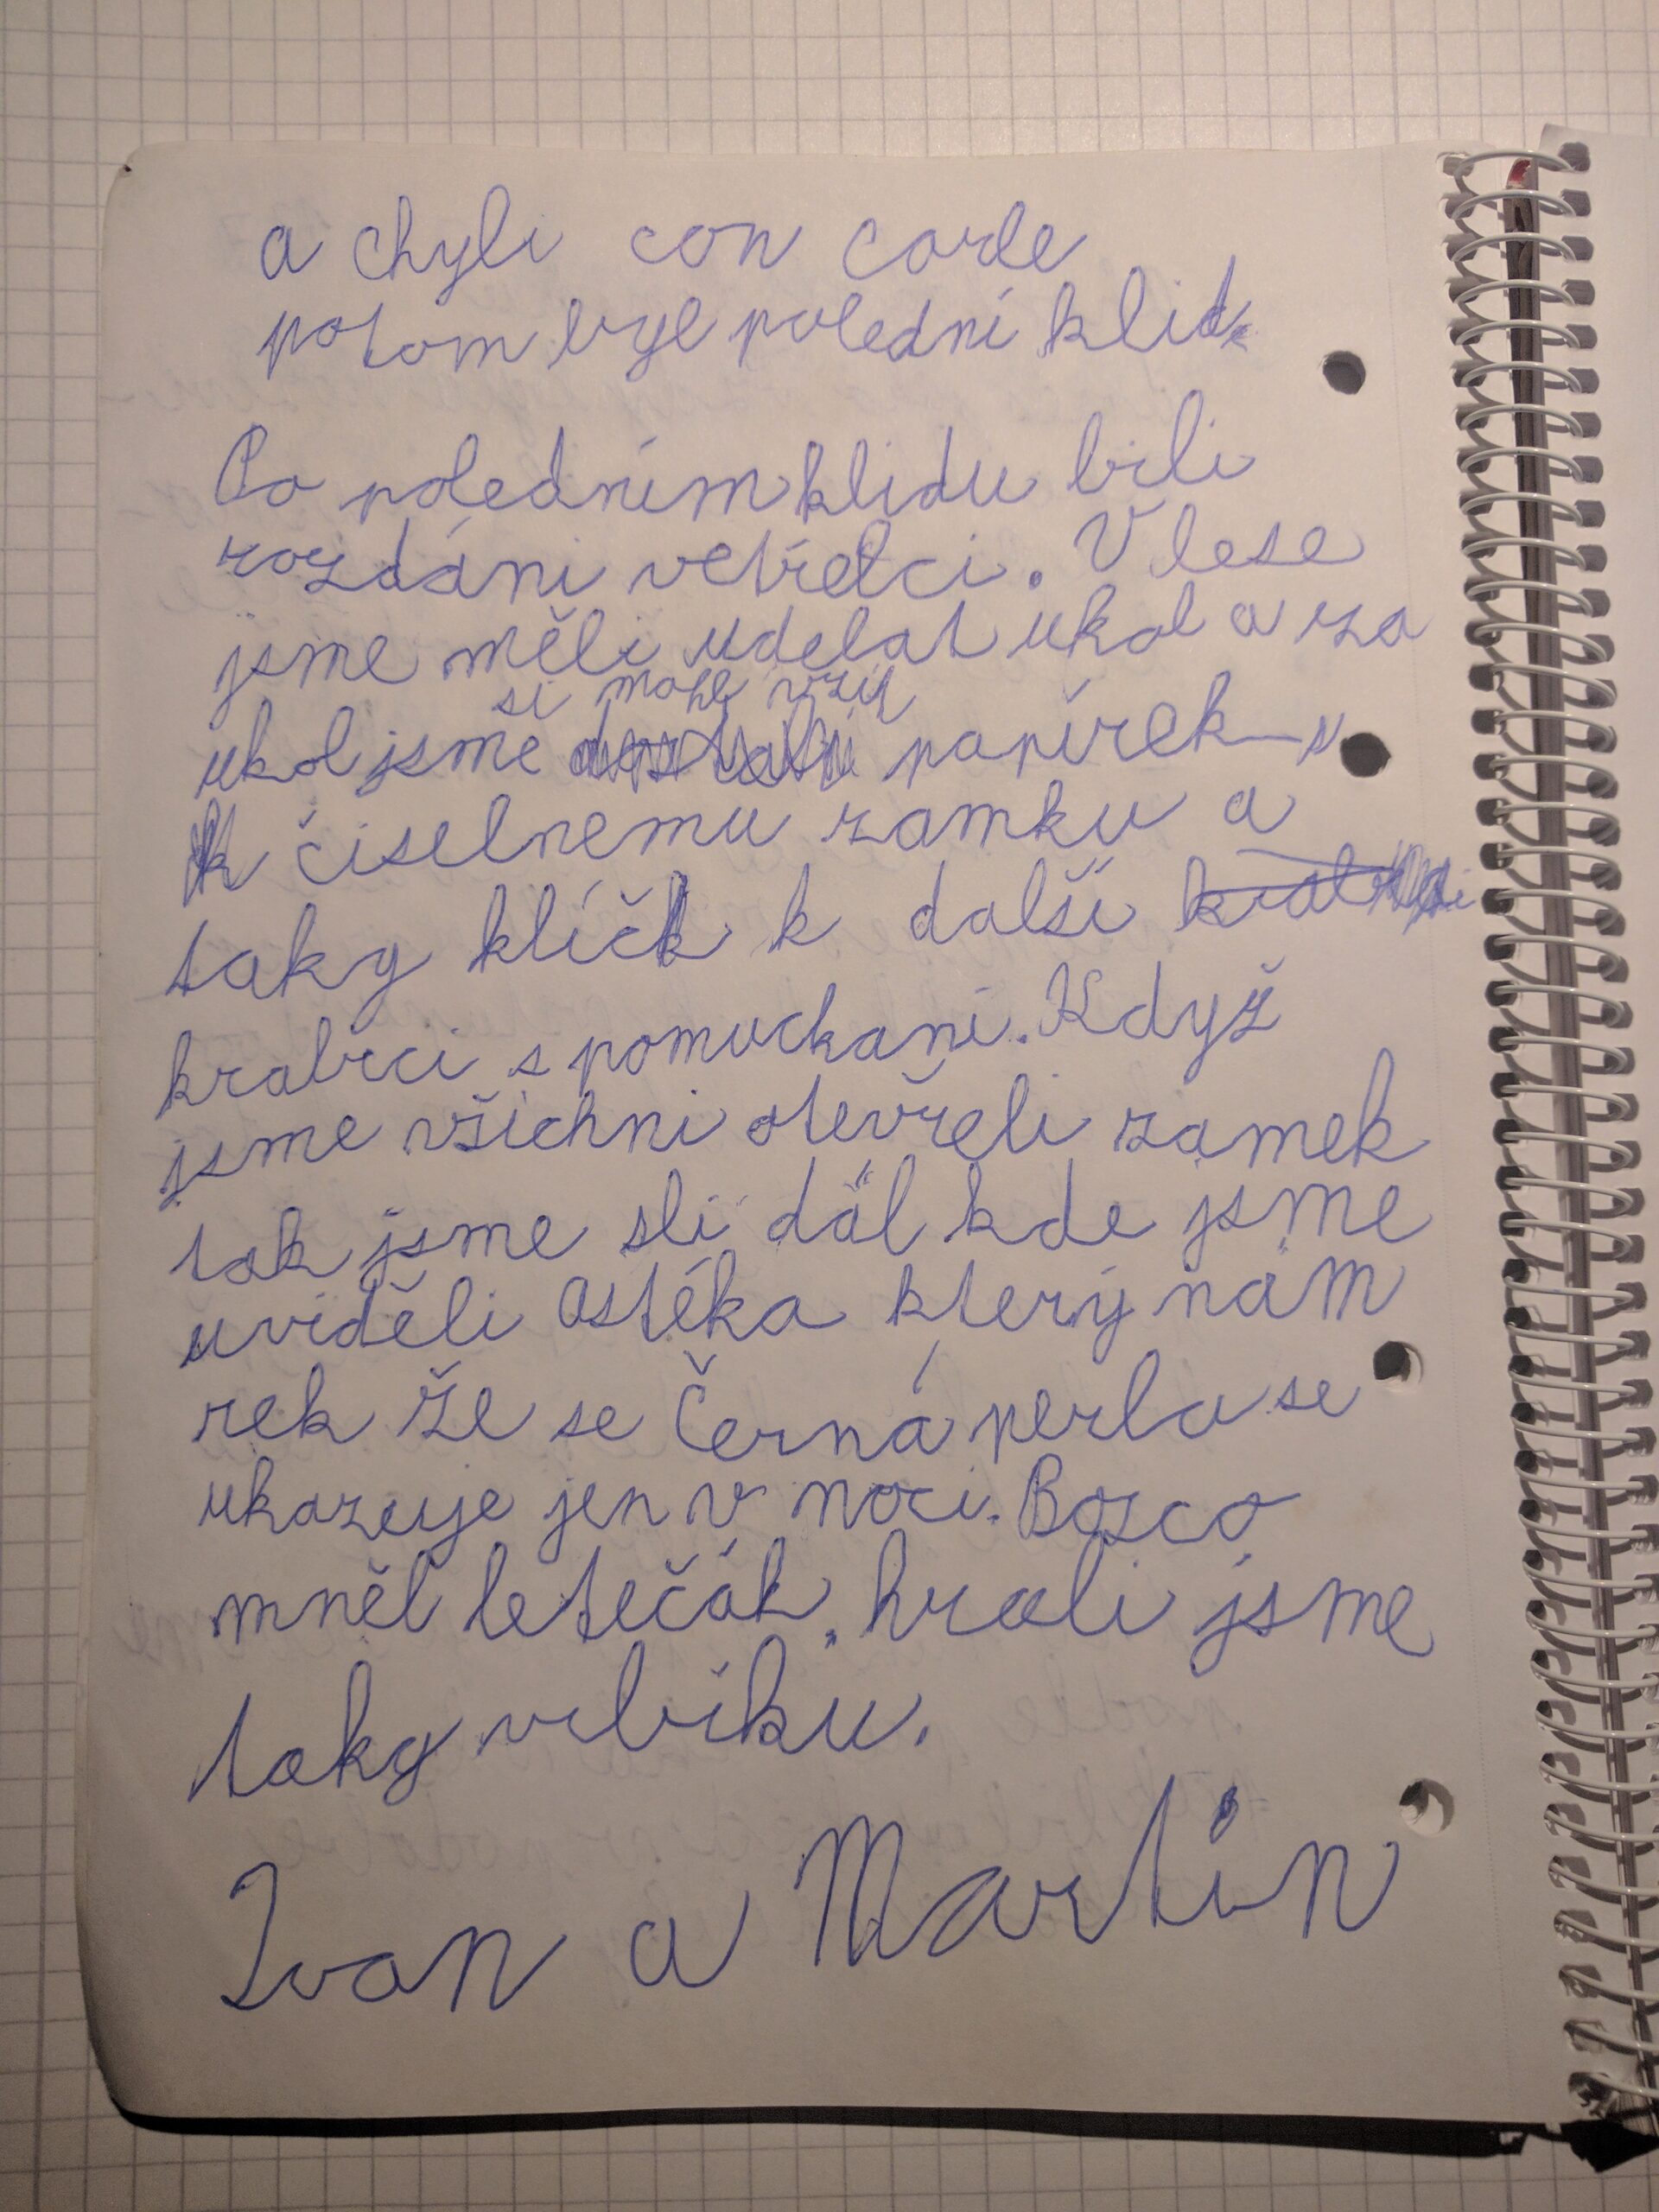 a chyli con carle
potom byl polední klid.
Po poledním klidu bili
rozdáni vetřelci. V lese
jsme měli udelat ukol a za
si mohl vzít
ukol jsme papírek
k čiselnemu zamku a
taky klíčk k další
krabici s pomuckani. Když
jsme všichni otevřeli zamek
tak jsme sli dál kde jsme
uviděli Astéka který nám
rek že se Černá perla se
ukazuje jen v noci. Bosco
mněl letečák. hrali jsme
taky vibiku.
Ivan a Martin